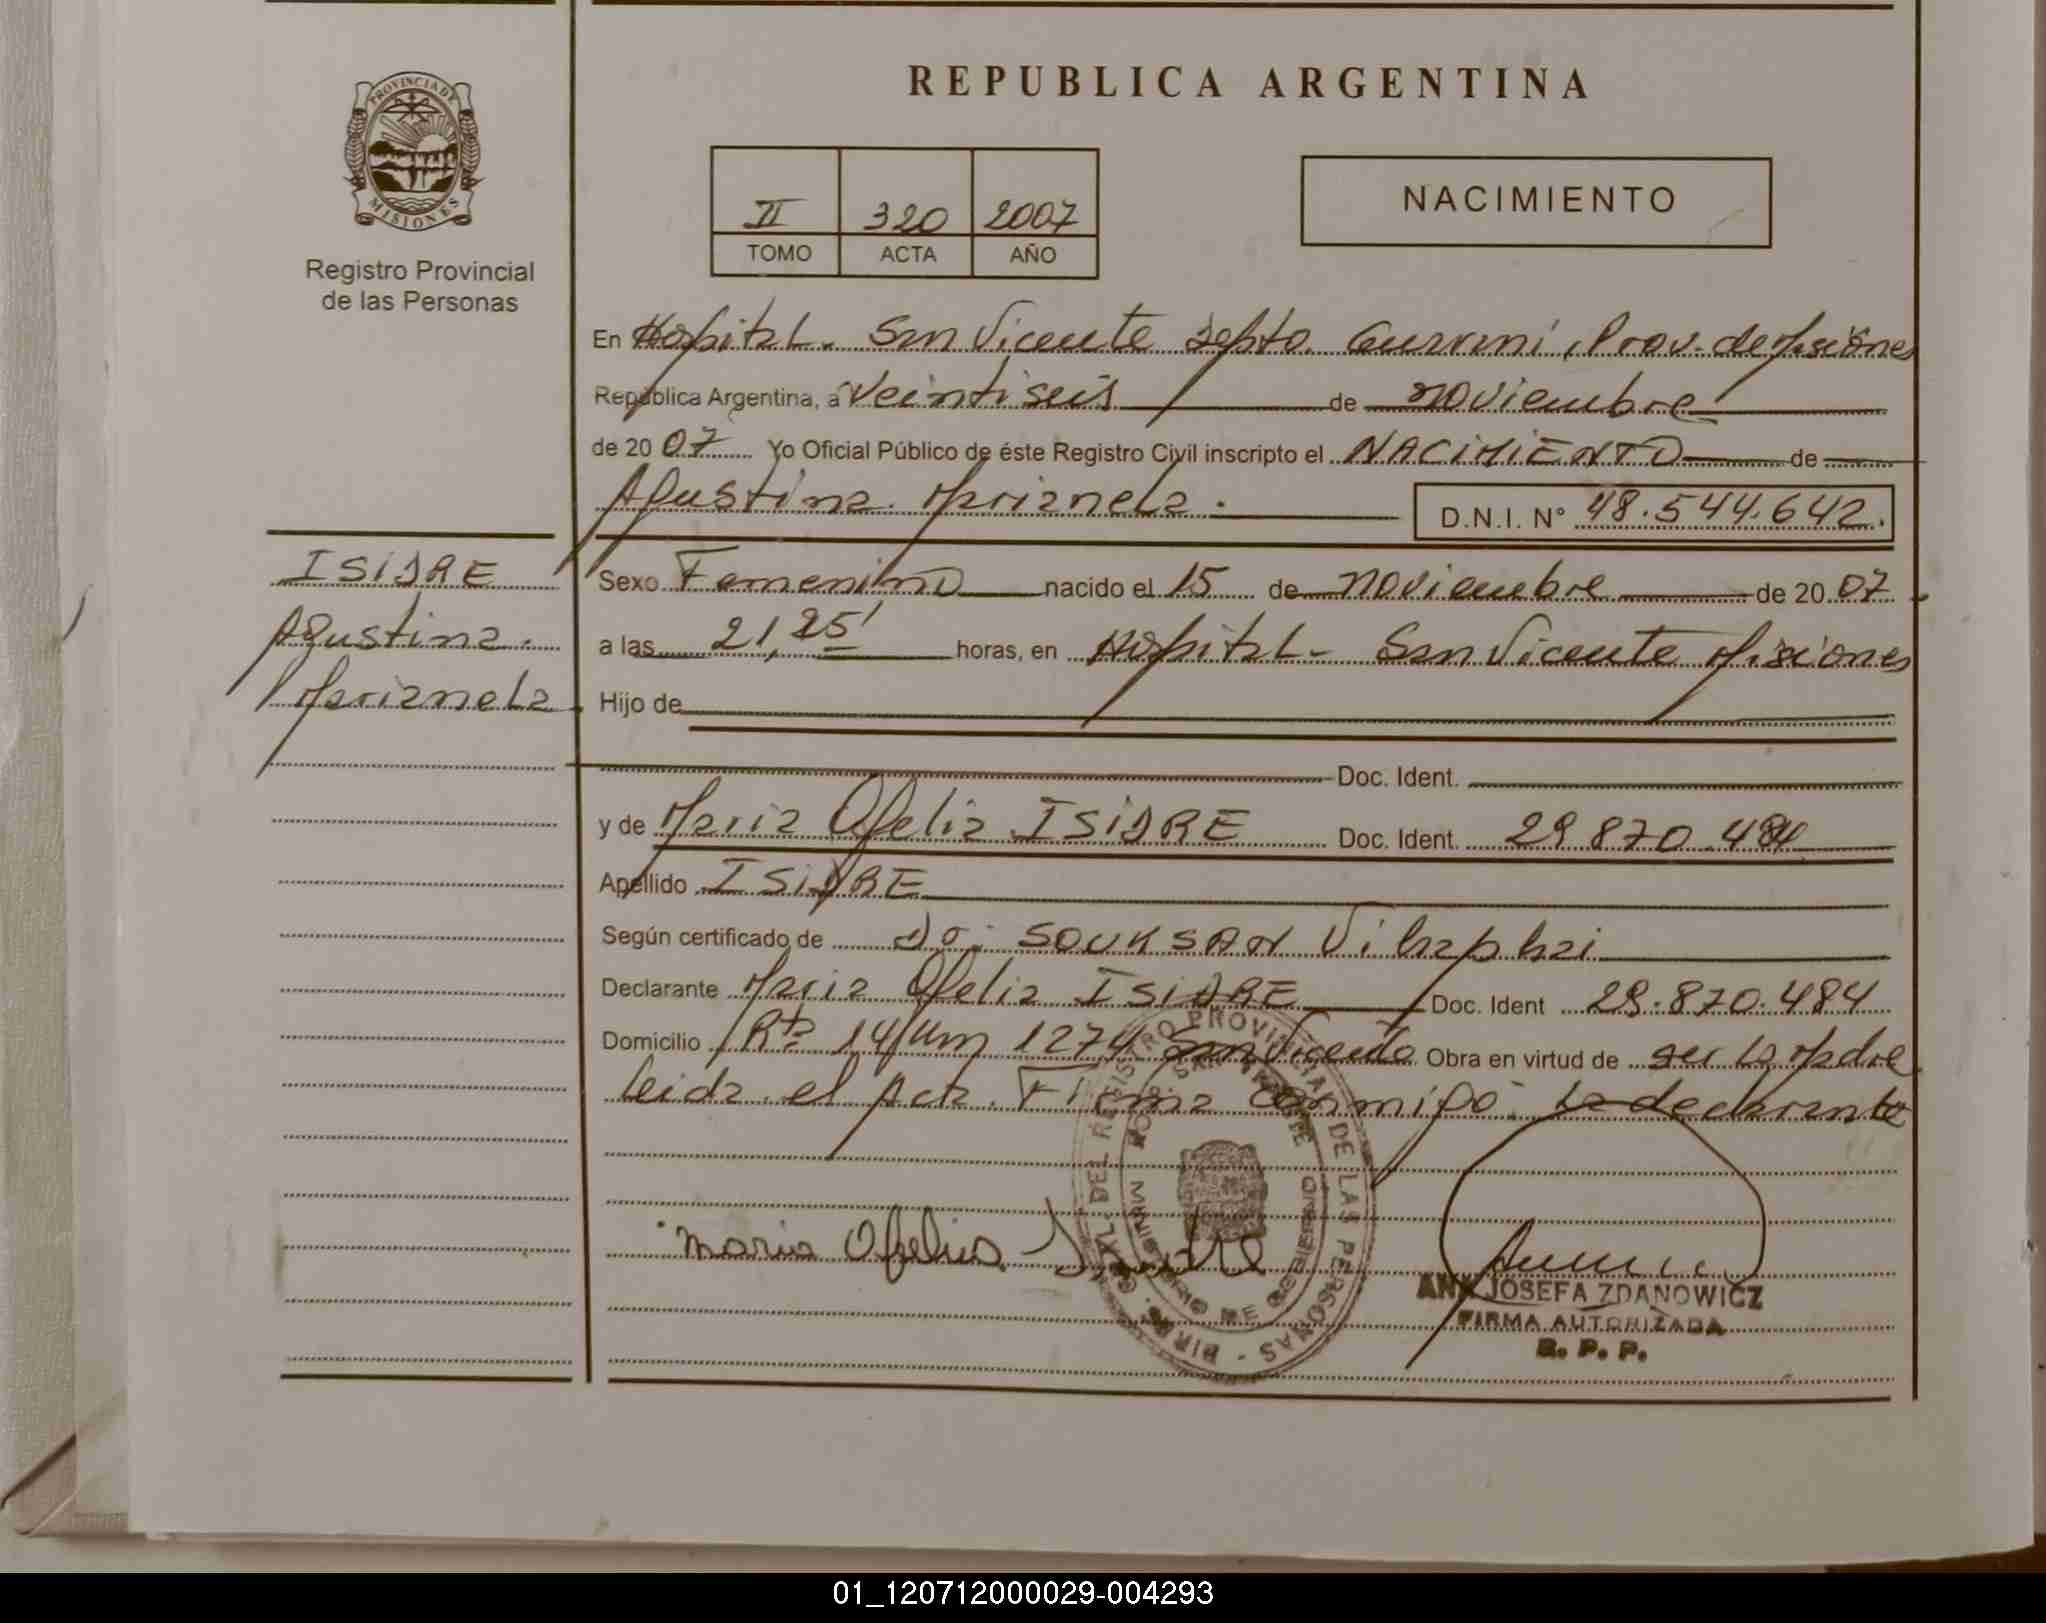 REPUBLICA ARGENTINA
PROVINCIA DE
MISIONES
Registro Provincial
de las Personas
II 320 2007
TOMO ACTA AÑO
NACIMIENTO
En Hospital. San Vicente Depto. Guarani, Prov. de Misiones
República Argentina, a Veintiseis de noviembre
de 20 07 Yo Oficial Público de éste Registro Civil inscripto el NACIMIENTO de
Agustina Marianela.
D.N.I. N° 48.544.642.
ISIDRE
Agustina
Marianela
Sexo Femenino nacido el 15 de noviembre de 20 07
a las 21,25' horas, en Hospital - San Vicente Misiones
Hijo de
Doc. Ident.
y de Maria Ofelia ISIDRE Doc. Ident. 29.870.484
Apellido ISIDRE
Según certificado de Dr. SOUKSAN Vihaphai
Declarante Maria Ofelia ISIDRE Doc. Ident 29.870.484
Domicilio Rta 14 Km 1274 San Vicente Obra en virtud de ser la Madre
leida el Acta. Firma conmigo la declarante
REGISTRO PROVINCIAL DE LAS PERSONAS
HOSP. SAN VICENTE
MINISTERIO DE GOBIERNO
Maria Ofelia Isidre
ANA JOSEFA ZDANOWICZ
FIRMA AUTORIZADA
R. P. P.
01_120712000029-004293